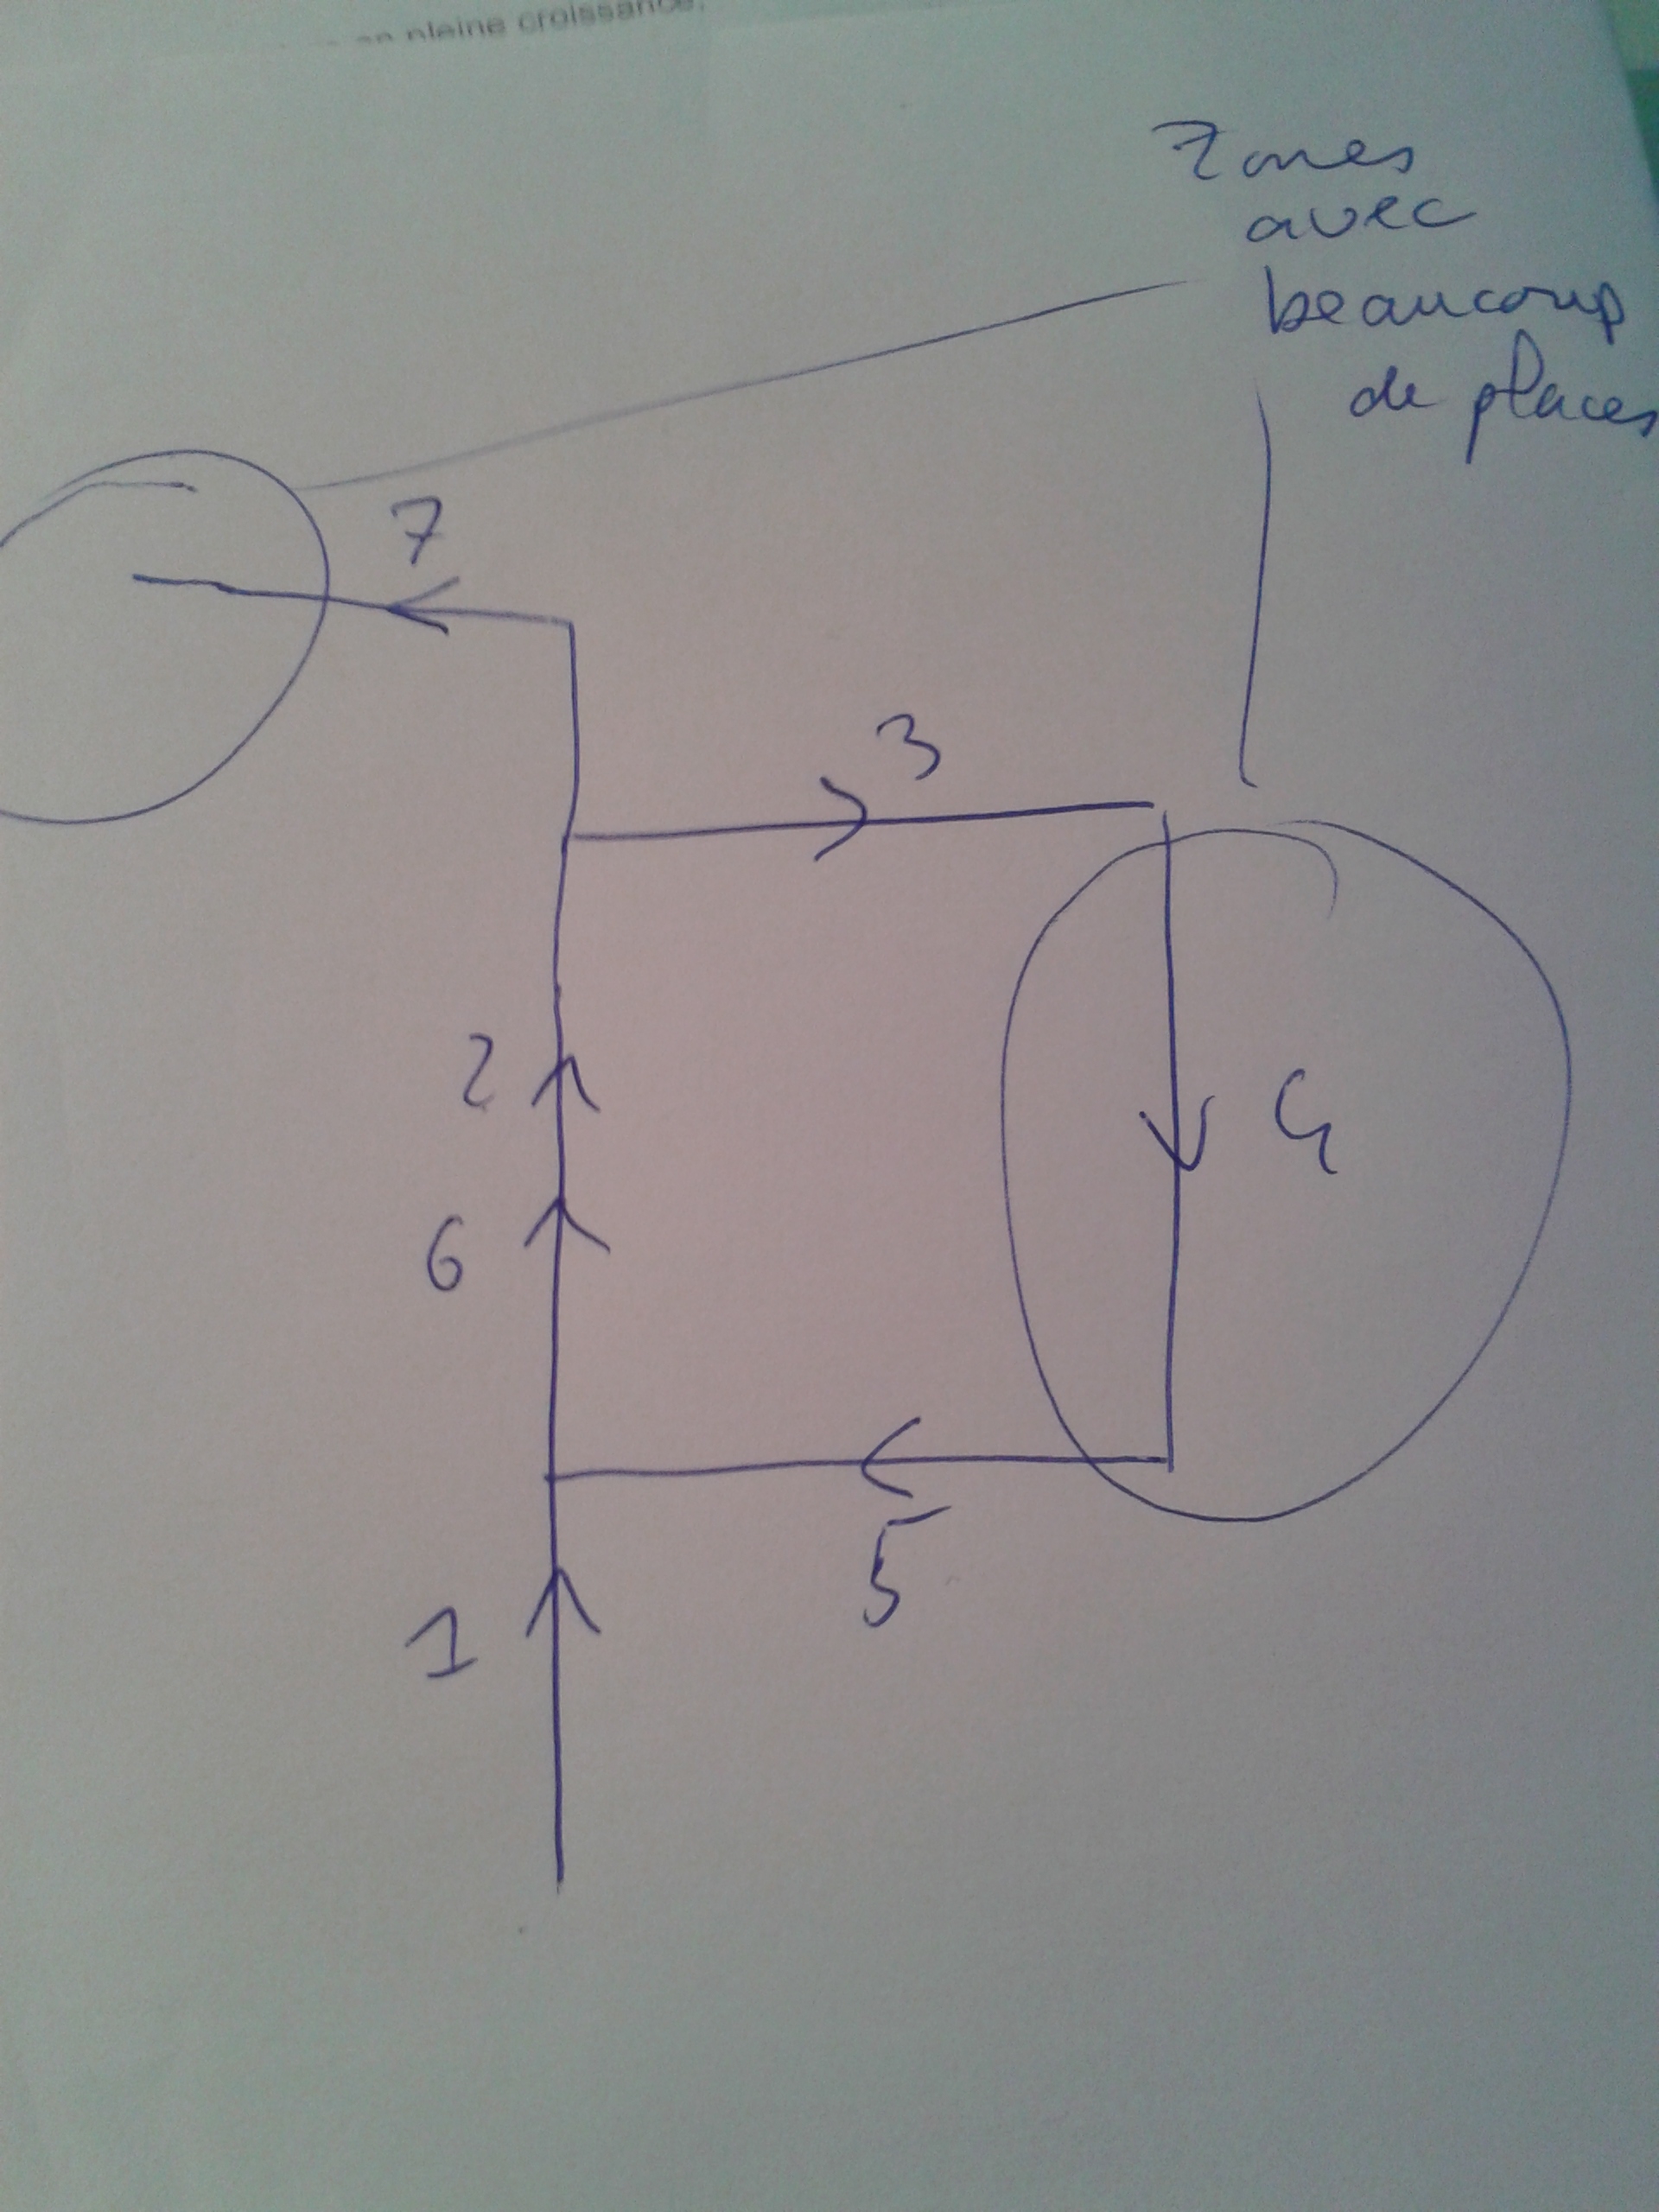 en pleine croissance,
Zones
avec
beaucoup
de places
7
3
2
4
6
5
1